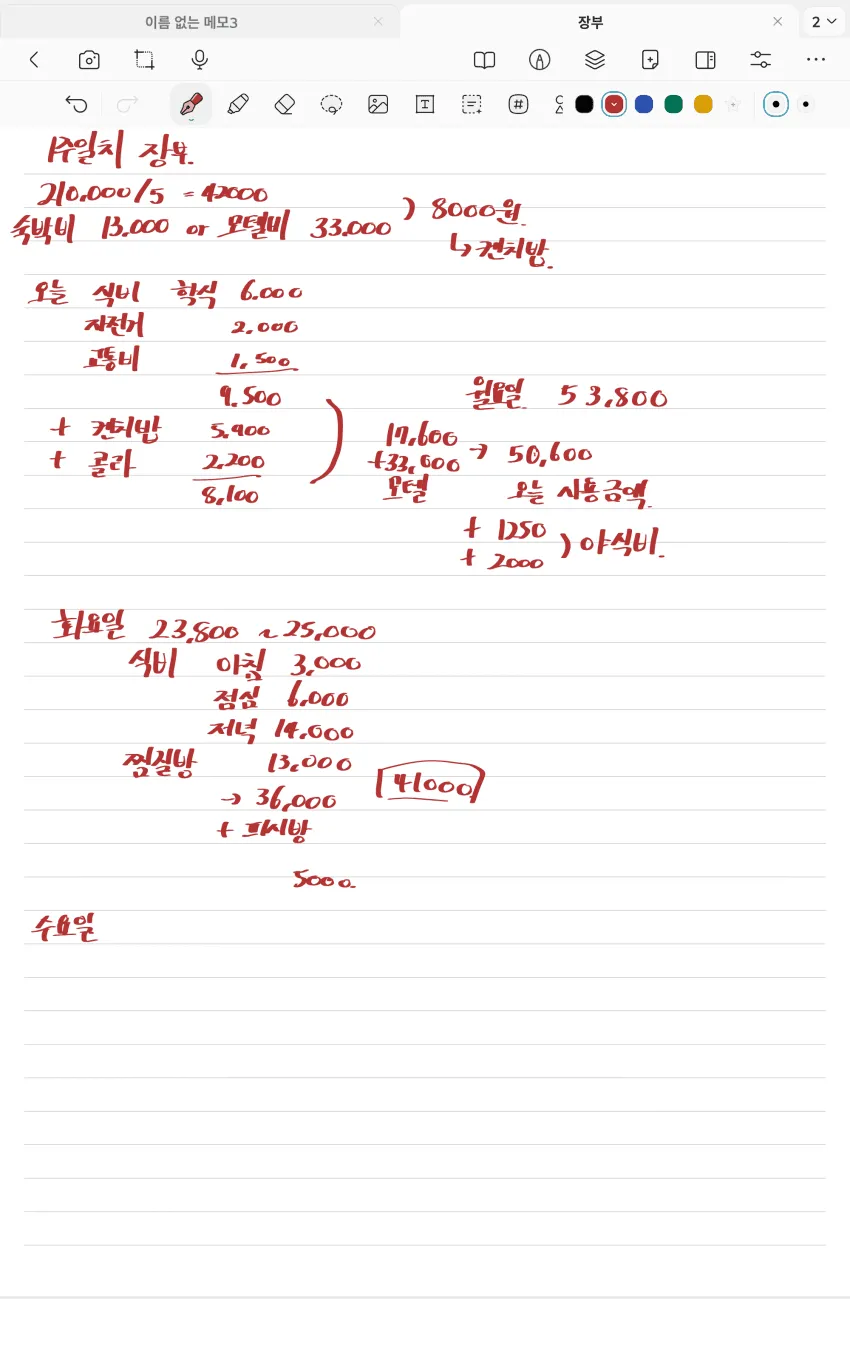 이름 없는 메모3
장부
2
1주일치 장부.
210.000/5 = 42000
숙박비 13.000 or 모텔비 33.000 ) 8000원.
↳ 컨치밥.
오늘 식비 학식 6.000
자전거 2.000
교통비 1,500
9.500
월요일 53,800
+ 컨치밥 5,900
+ 콜라 2,200
8,100
17,600
+33,000 → 50,600
모텔 오늘 사용금액.
+ 1250
+ 2000 ) 야식비.
화요일 23,800 ~ 25,000
식비 아침 3,000
점심 6.000
저녁 14.000
찜질방 13,000
41000
→ 36,000
+ 피시방
5000.
수요일